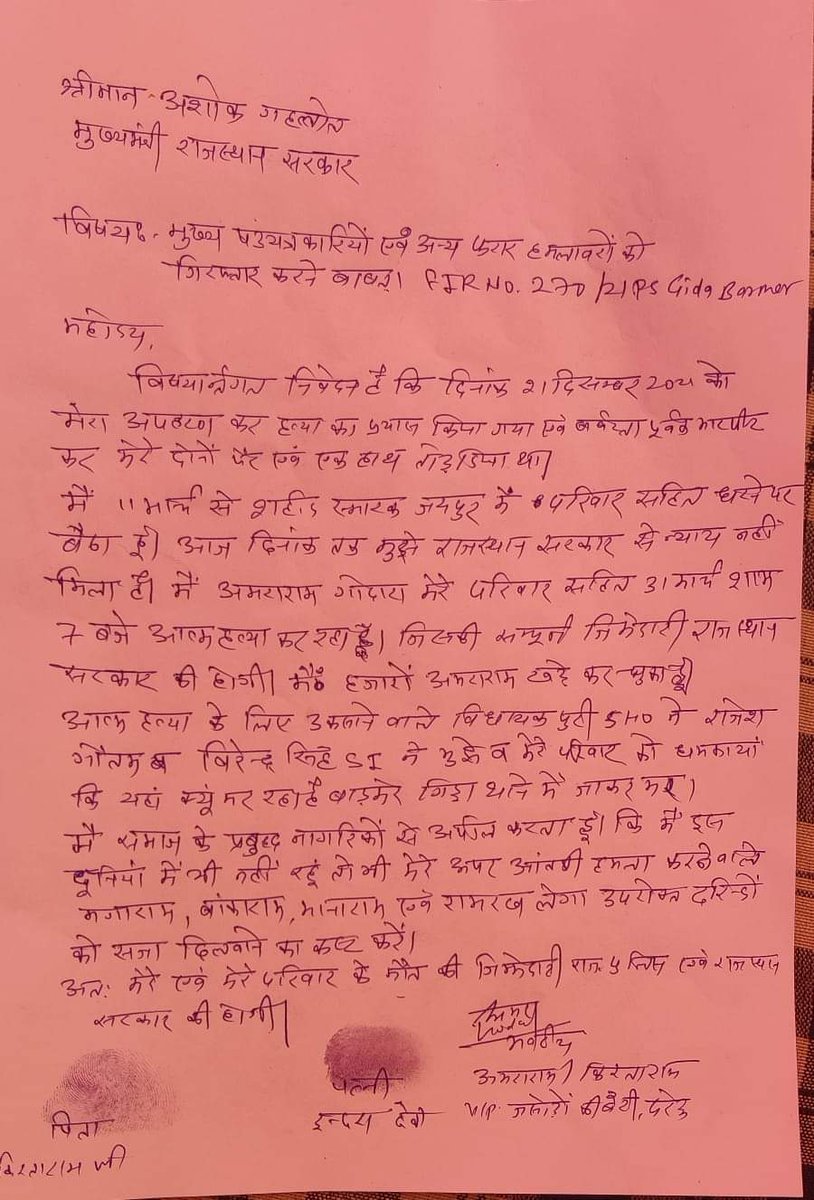 श्रीमान - अशोक गहलोत
मुख्यमंत्री राजस्थान सरकार
विषय:- मुख्य षडयंत्रकारियों एवं अन्य फरार हमलावरों को
गिरफ्तार करने बाबत्। FIR NO. 270/21 PS Gida Barmer
महोदय,
विषयान्तर्गत निवेदन है कि दिनांक 21 दिसम्बर 2021 को
मेरा अपहरण कर हत्या का प्रयास किया गया एवं बर्बरता पूर्वक मारपीट
कर मेरे दोनों पैर एवं एक हाथ तोड़ दिया था।
मैं 11 मार्च से शहीद स्मारक जयपुर में परिवार सहित धरने पर
बैठा हूँ। आज दिनांक तक मुझे राजस्थान सरकार से न्याय नहीं
मिला है। मैं अमराराम गोदारा मेरे परिवार सहित 31 मार्च शाम
7 बजे आत्महत्या कर रहा हूँ। जिसकी सम्पूर्ण जिमेदारी राजस्थान
सरकार की होगी। मैं हजारों अमराराम खड़े कर चुका हूँ।
आत्म हत्या के लिए उकसाने वाले विधायकपुरी SHO ने राजेश
गौतम व विरेन्द्र सिंह SI ने मुझे व मेरे परिवार को धमकाया
कि यहां क्यूं मर रहा है बाड़मेर गिड़ा थाने में जाकर मर।
मैं समाज के प्रबुद्ध नागरिकों से अपील करता हूँ। कि मैं इस
दूनियां में भी नहीं रहूं तो भी मेरे ऊपर आंतकी हमला करने वाले
नगाराम, बांकाराम, मानाराम एवं रामरख लेगा उपरोक्त दरिन्दों
को सजा दिलवाने का कष्ट करें।
अतः मेरे एवं मेरे परिवार के मौत की जिमेदारी राज. पुलिस एवं राजस्थान
सरकार की होगी।
भवदीय
पत्नी
अमराराम / किस्तुराम
इन्दरा देवी
V/P
पिता